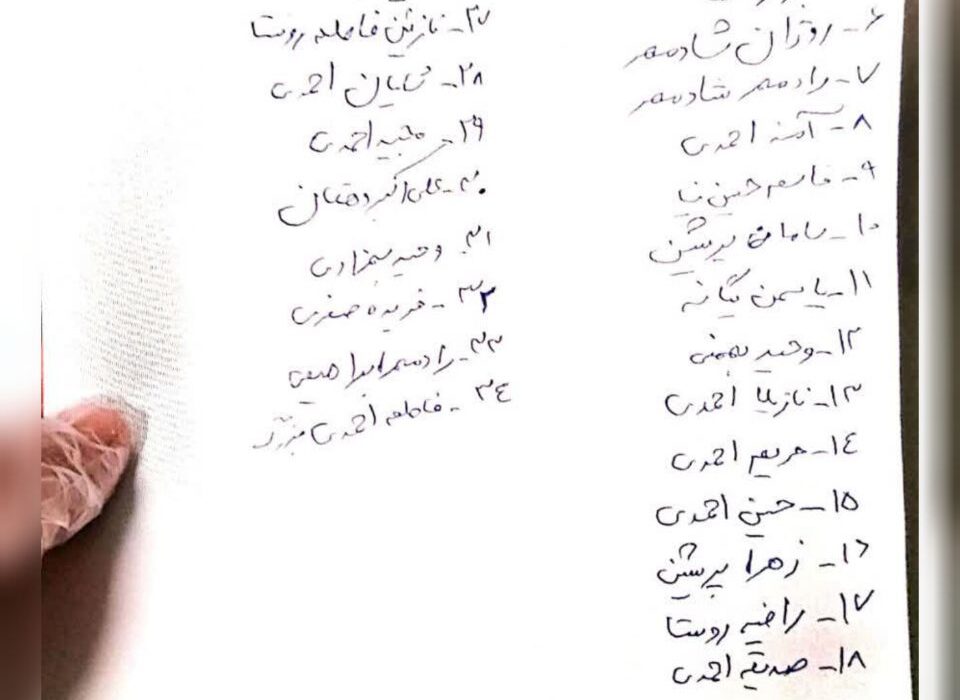 ۶- روژان شادمهر
۷- رادمهر شادمهر
۸- آمنه احمدی
۹- قاسم حسین نیا
۱۰- سامان پرشین
۱۱- یاسمن یگانه
۱۲- وحید بهمنی
۱۳- نازیلا احمدی
۱٤- مریم احمدی
۱۵- حسین احمدی
۱۶- زهرا پرشین
۱۷- راضیه روستا
۱۸- صدیقه احمدی
۲۷- نازنین فاطمه روستا
۲۸- احمدی
۲۹- مجید احمدی
۳۰- علی اکبر دهقان
۳۱- وحید بهزادی
۳۲- فریده صفری
۳۳- رادمهر ابراهیمی
۳٤- فاطمه احمدی